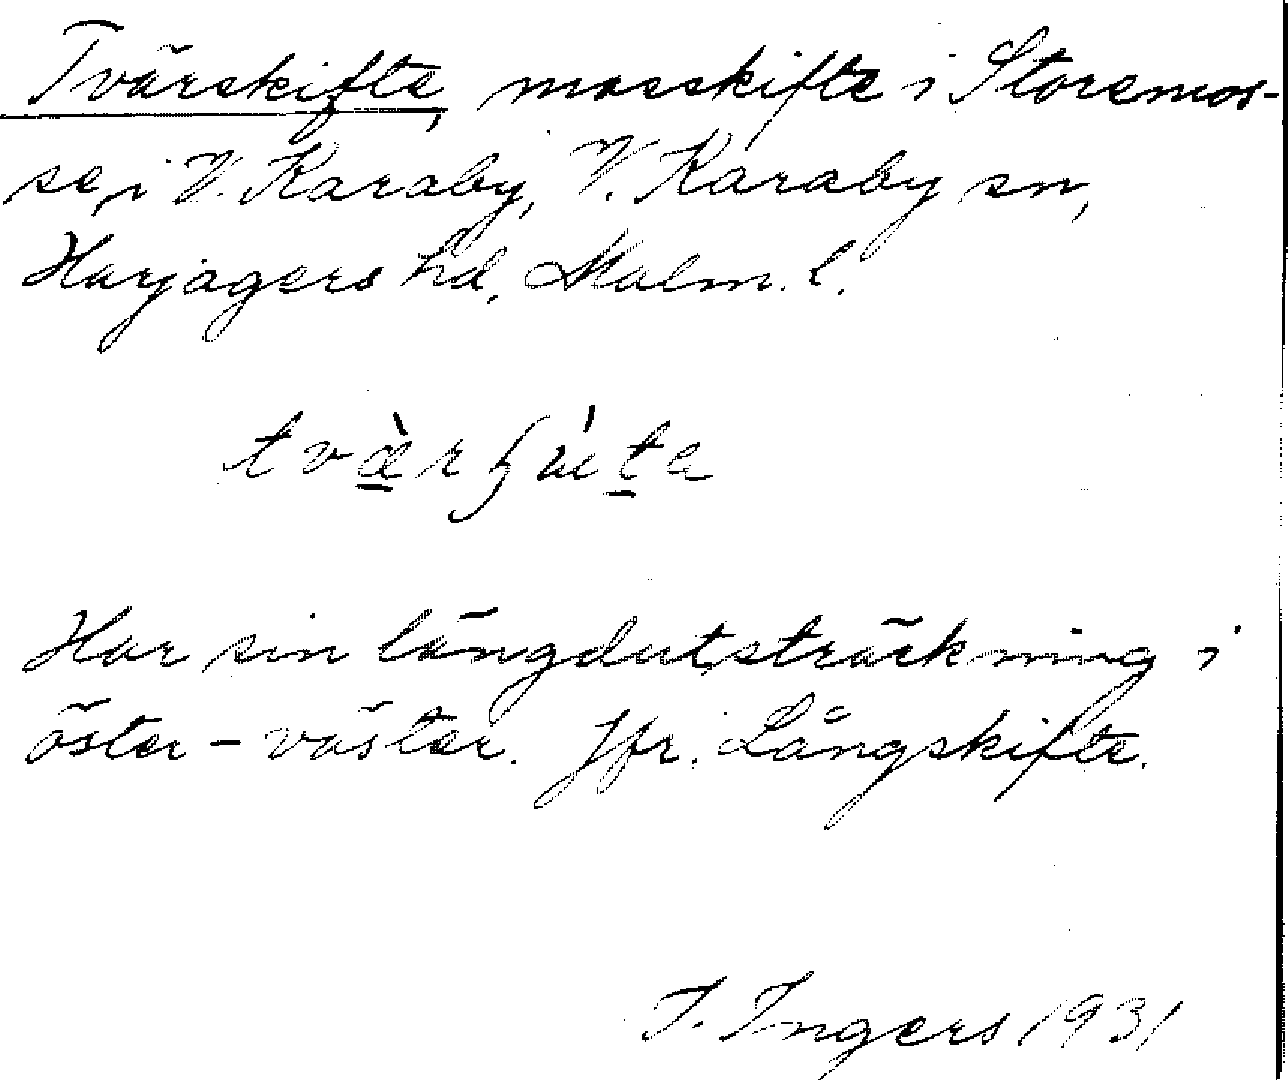 Tvärskifte, mosskifte i Storemos-
se, i V. Karaby, V. Karaby sn,
Harjagers hd, Malm. l.
Har sin längdutsträckning i
öster - väster. Jfr. Långskifte.
I. Ingers 1931